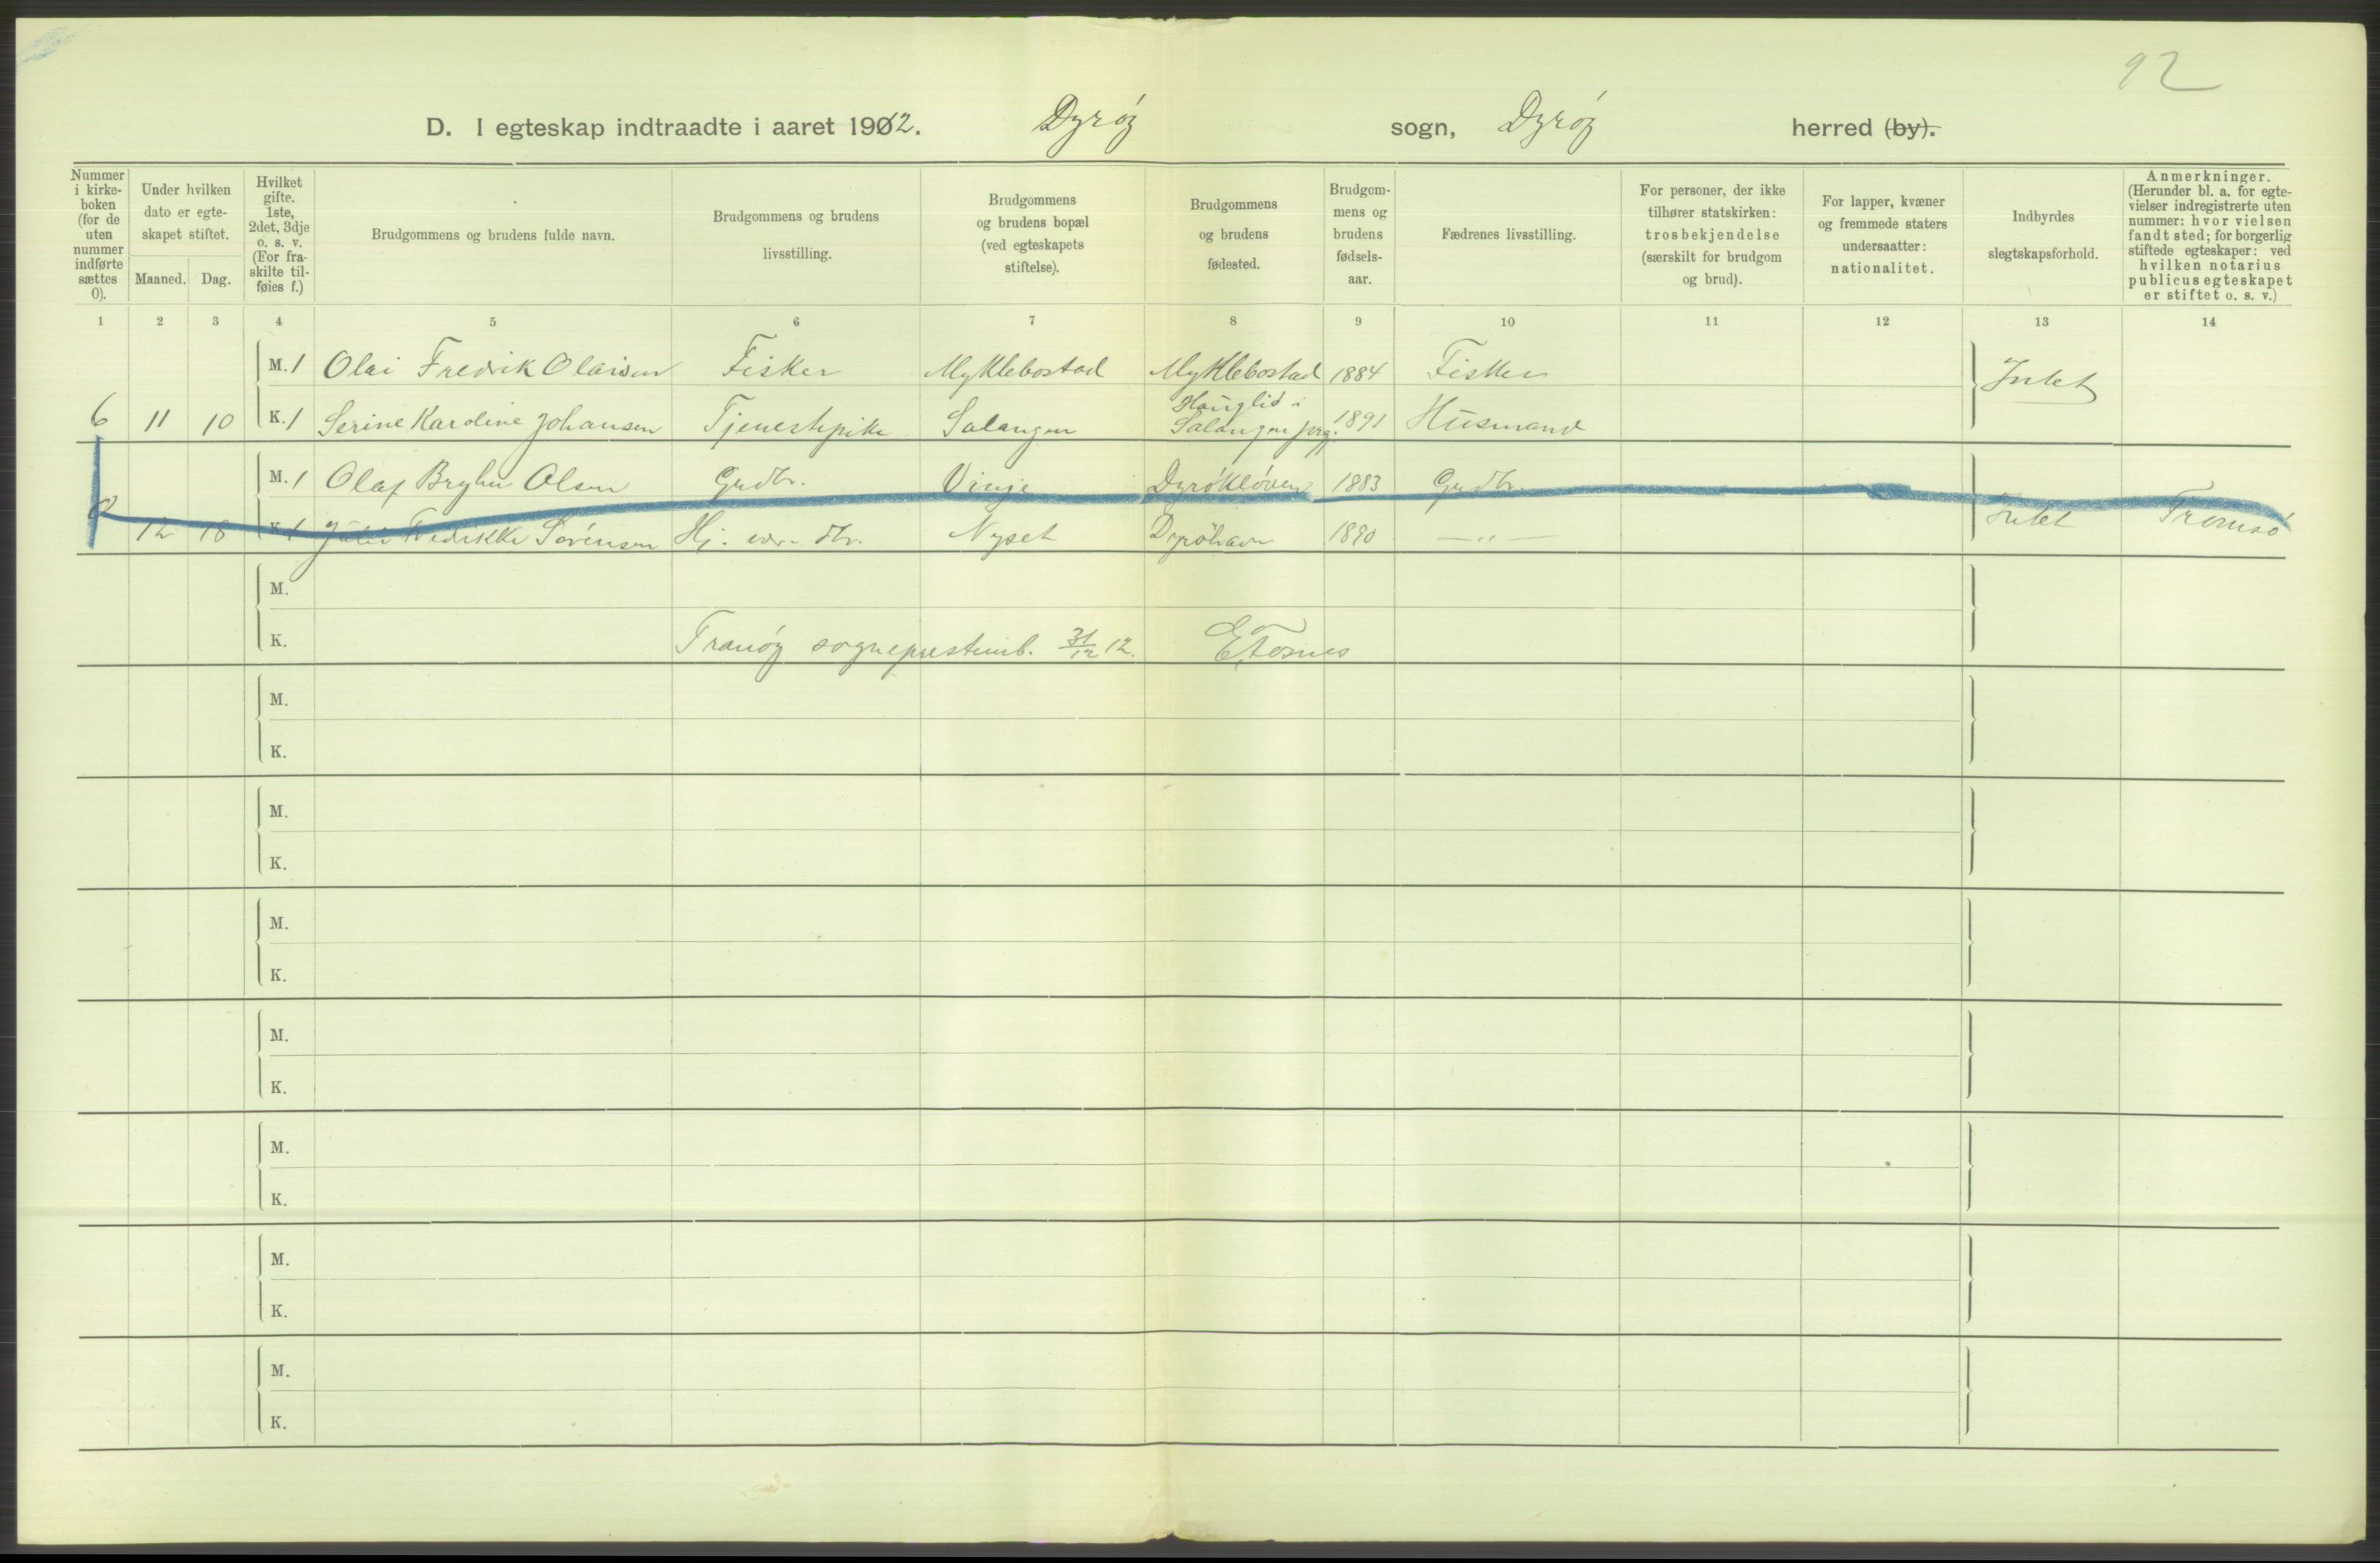 92
D. I egteskap indtraadte i aaret 1912. Dyrøy sogn, Dyrøy herred (by).
Nummer i kirkeboken (for de uten nummer indførte sættes 0).
Under hvilken dato er egteskapet stiftet.
Maaned. Dag.
Hvilket gifte. 1ste, 2det, 3dje o. s. v. (For fraskilte tilføies f.)
Brudgommens og brudens fulde navn.
Brudgommens og brudens livsstilling.
Brudgommens og brudens bopæl (ved egteskapets stiftelse).
Brudgommens og brudens fødested.
Brudgommens og brudens fødselsaar.
Fædrenes livsstilling.
For personer, der ikke tilhører statskirken: trosbekjendelse (særskilt for brudgom og brud).
For lapper, kvæner og fremmede staters undersaatter: nationalitet.
Indbyrdes slegtskapsforhold.
Anmerkninger. (Herunder bl. a. for egtevielser indregistrerte uten nummer: hvor vielsen fandt sted; for borgerlig stiftede egteskaper: ved hvilken notarius publicus egteskapet er stiftet o. s. v.)
1 2 3 4 5 6 7 8 9 10 11 12 13 14
M. 1 Olai Fredrik Olaisen Fisker Myklebostad Myklebostad 1884 Fisker Intet
6 11 10 K. 1 Serine Karoline Johansen Tjenestepike Salangen Hauglid i Salangen prg. 1891 Husmand
M. 1 Olaf Bryhn Olsen Grdbr. Vinje Dyrøkløven 1883 Grdbr.
0 12 18 K. 1 Julie Fredrikke Sørensen Hj. vær. dtr. Nyset Dyröhavn 1890 — „ — Intet Tromsø
M.
K. Tranøy sogneprestemb. 31/12 12.
M.
K.
M.
K.
M.
K.
M.
K.
M.
K.
M.
K.
M.
K.